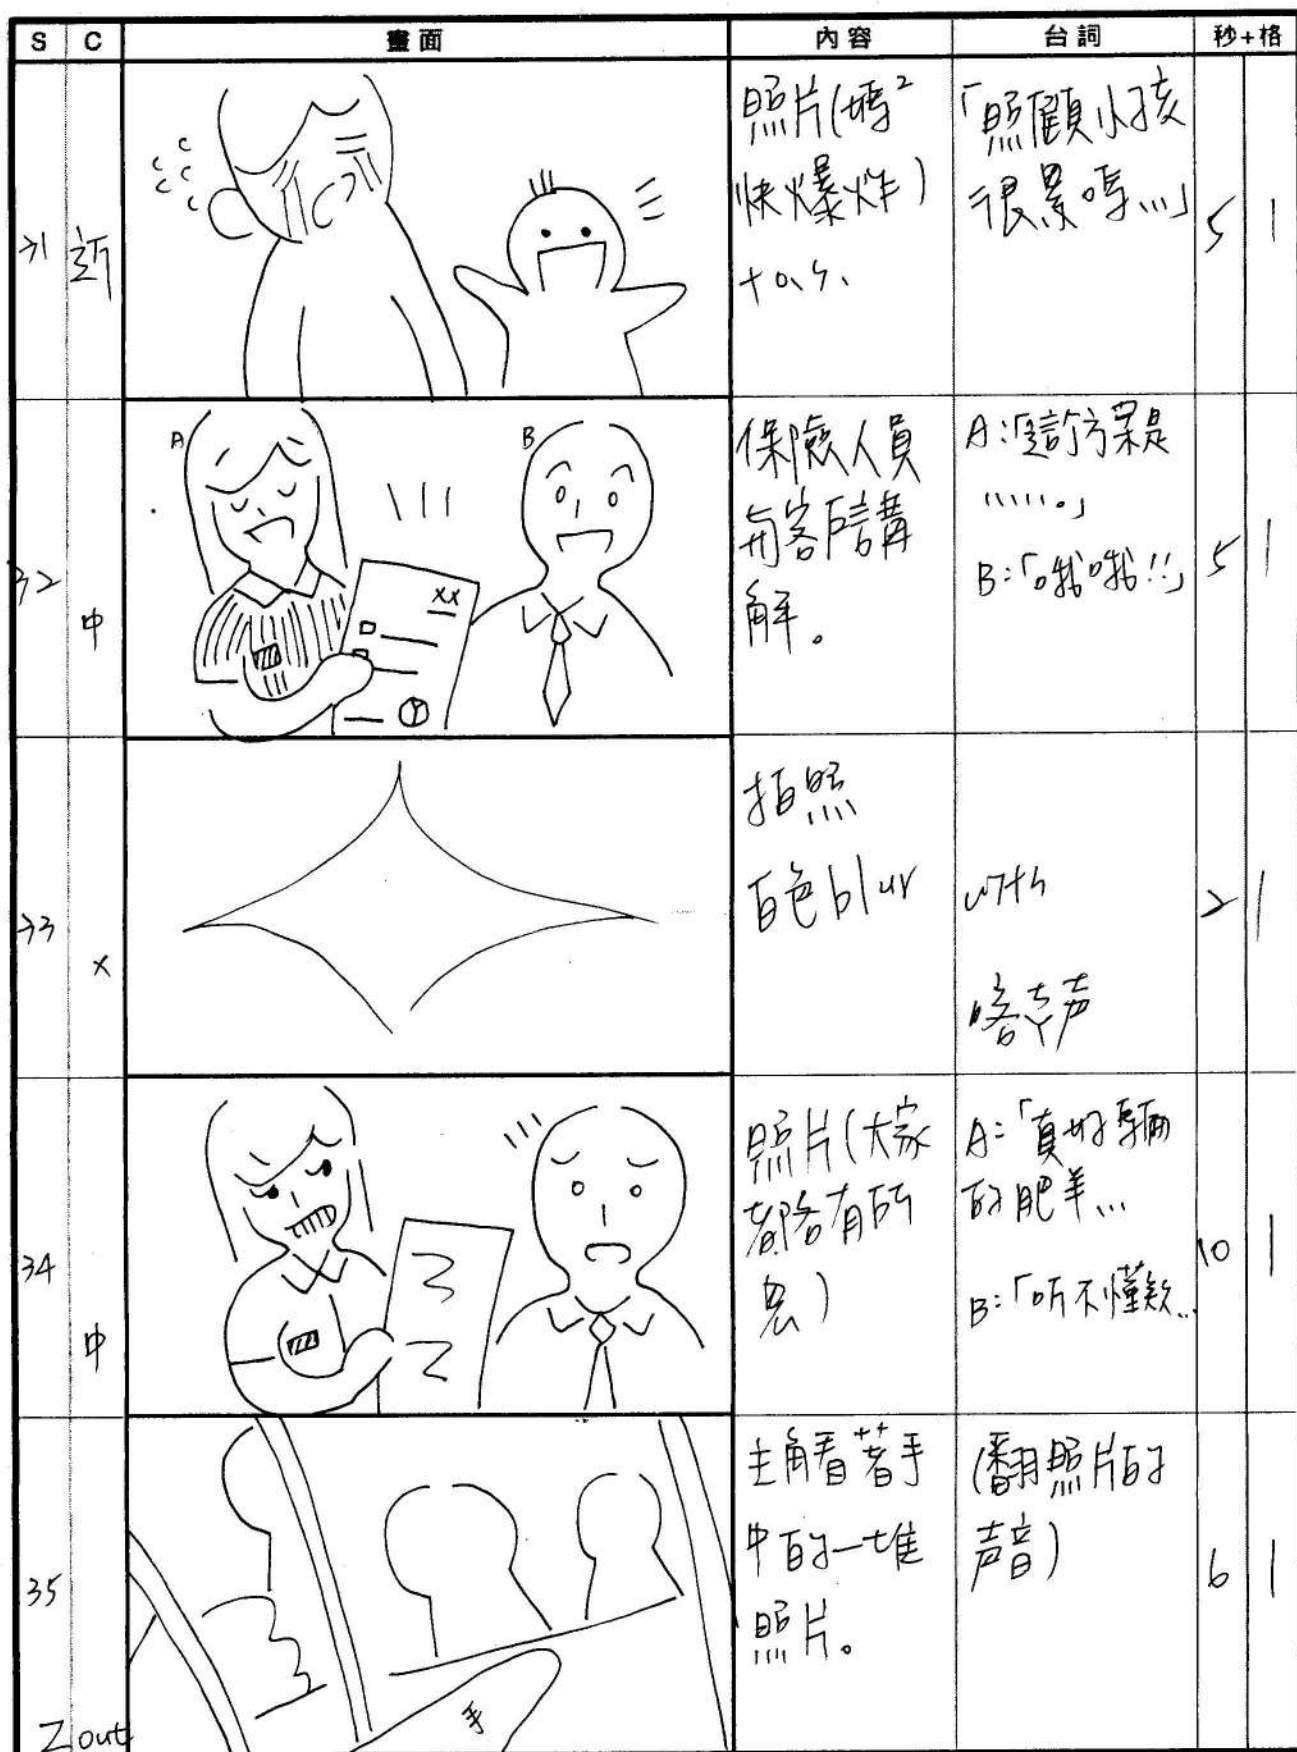 S C 畫面 內容 台詞 秒+格
31 近
照片(媽²
快爆炸)
「照顧小孩
很累嗎...」
5 1
32 中
A
B
xx
保險人員
與客戶講
解。
A:「這方案是
......。」
B:「哦哦!!」
5 1
33 x
拍照
白色blur
with
喀擦声
2 1
34 中
照片(大家
都各有所
思)
A:「真好騙
的肥羊...
B:「听不懂欸...
10 1
35
Z out
手
主角看著手
中的一堆
照片。
(翻照片的
声音)
6 1